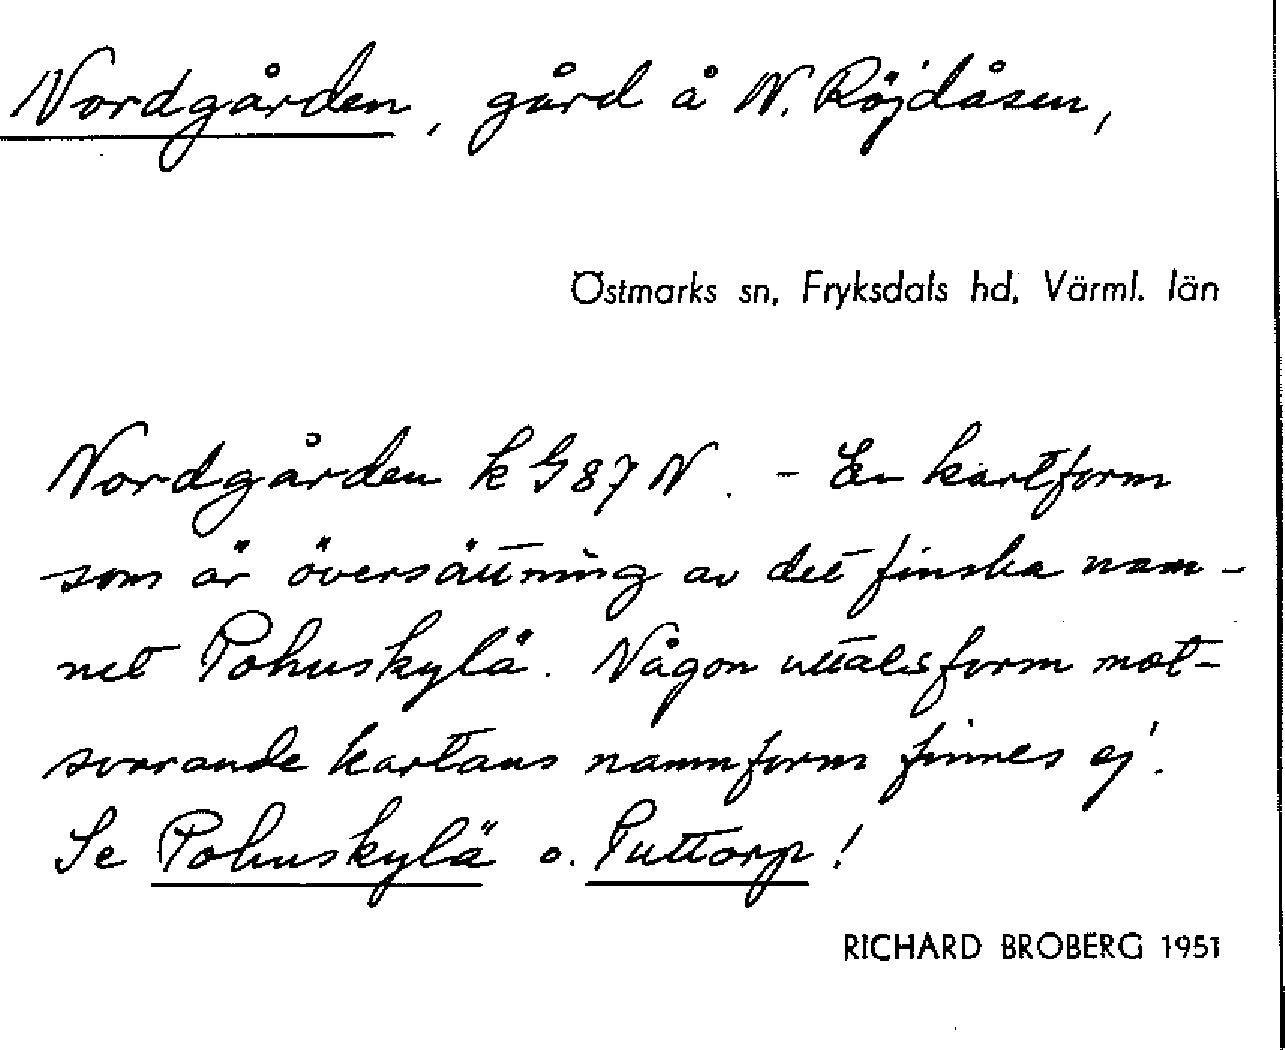 Nordgården, gård å N. Röjdåsen,
Östmarks sn, Fryksdals hd, Värml. län
Nordgården k G 87 N. - En kartform
som är översättning av det finska nam-
net Pohuskylä. Någon uttalsform mot-
svarande kartans namnform finnes ej.
Se Pohuskylä o. Puttorp!
RICHARD BROBERG 1951